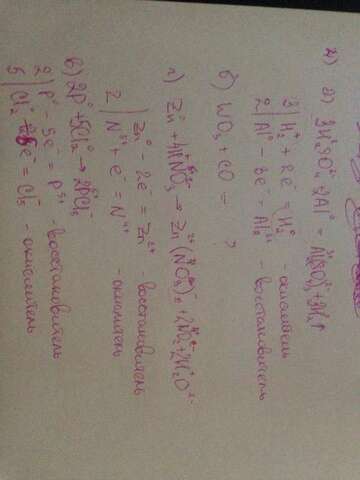 2) а) 3H₂SO₄ + 2Al⁰ = Al₂(SO₄)₃ + 3H₂↑
3| H₂⁺ + 2e⁻ = H₂⁰ - окислитель
2| Al⁰ - 3e⁻ = Al³⁺ - восстановитель
б) WO₃ + CO → ?
г) Zn⁰ + 4HNO₃ → Zn(NO₃)₂ + 2NO₂ + 2H₂O
Zn⁰ - 2e⁻ = Zn²⁺ - восстановитель
2| N⁵⁺ + e⁻ = N⁴⁺ - окислитель
в) 2P⁰ + 5Cl₂⁰ → 2PCl₅
2| P⁰ - 5e⁻ = P⁵⁺ - восстановитель
5| Cl₂⁰ + 2e⁻ = Cl₅⁻ - окислитель